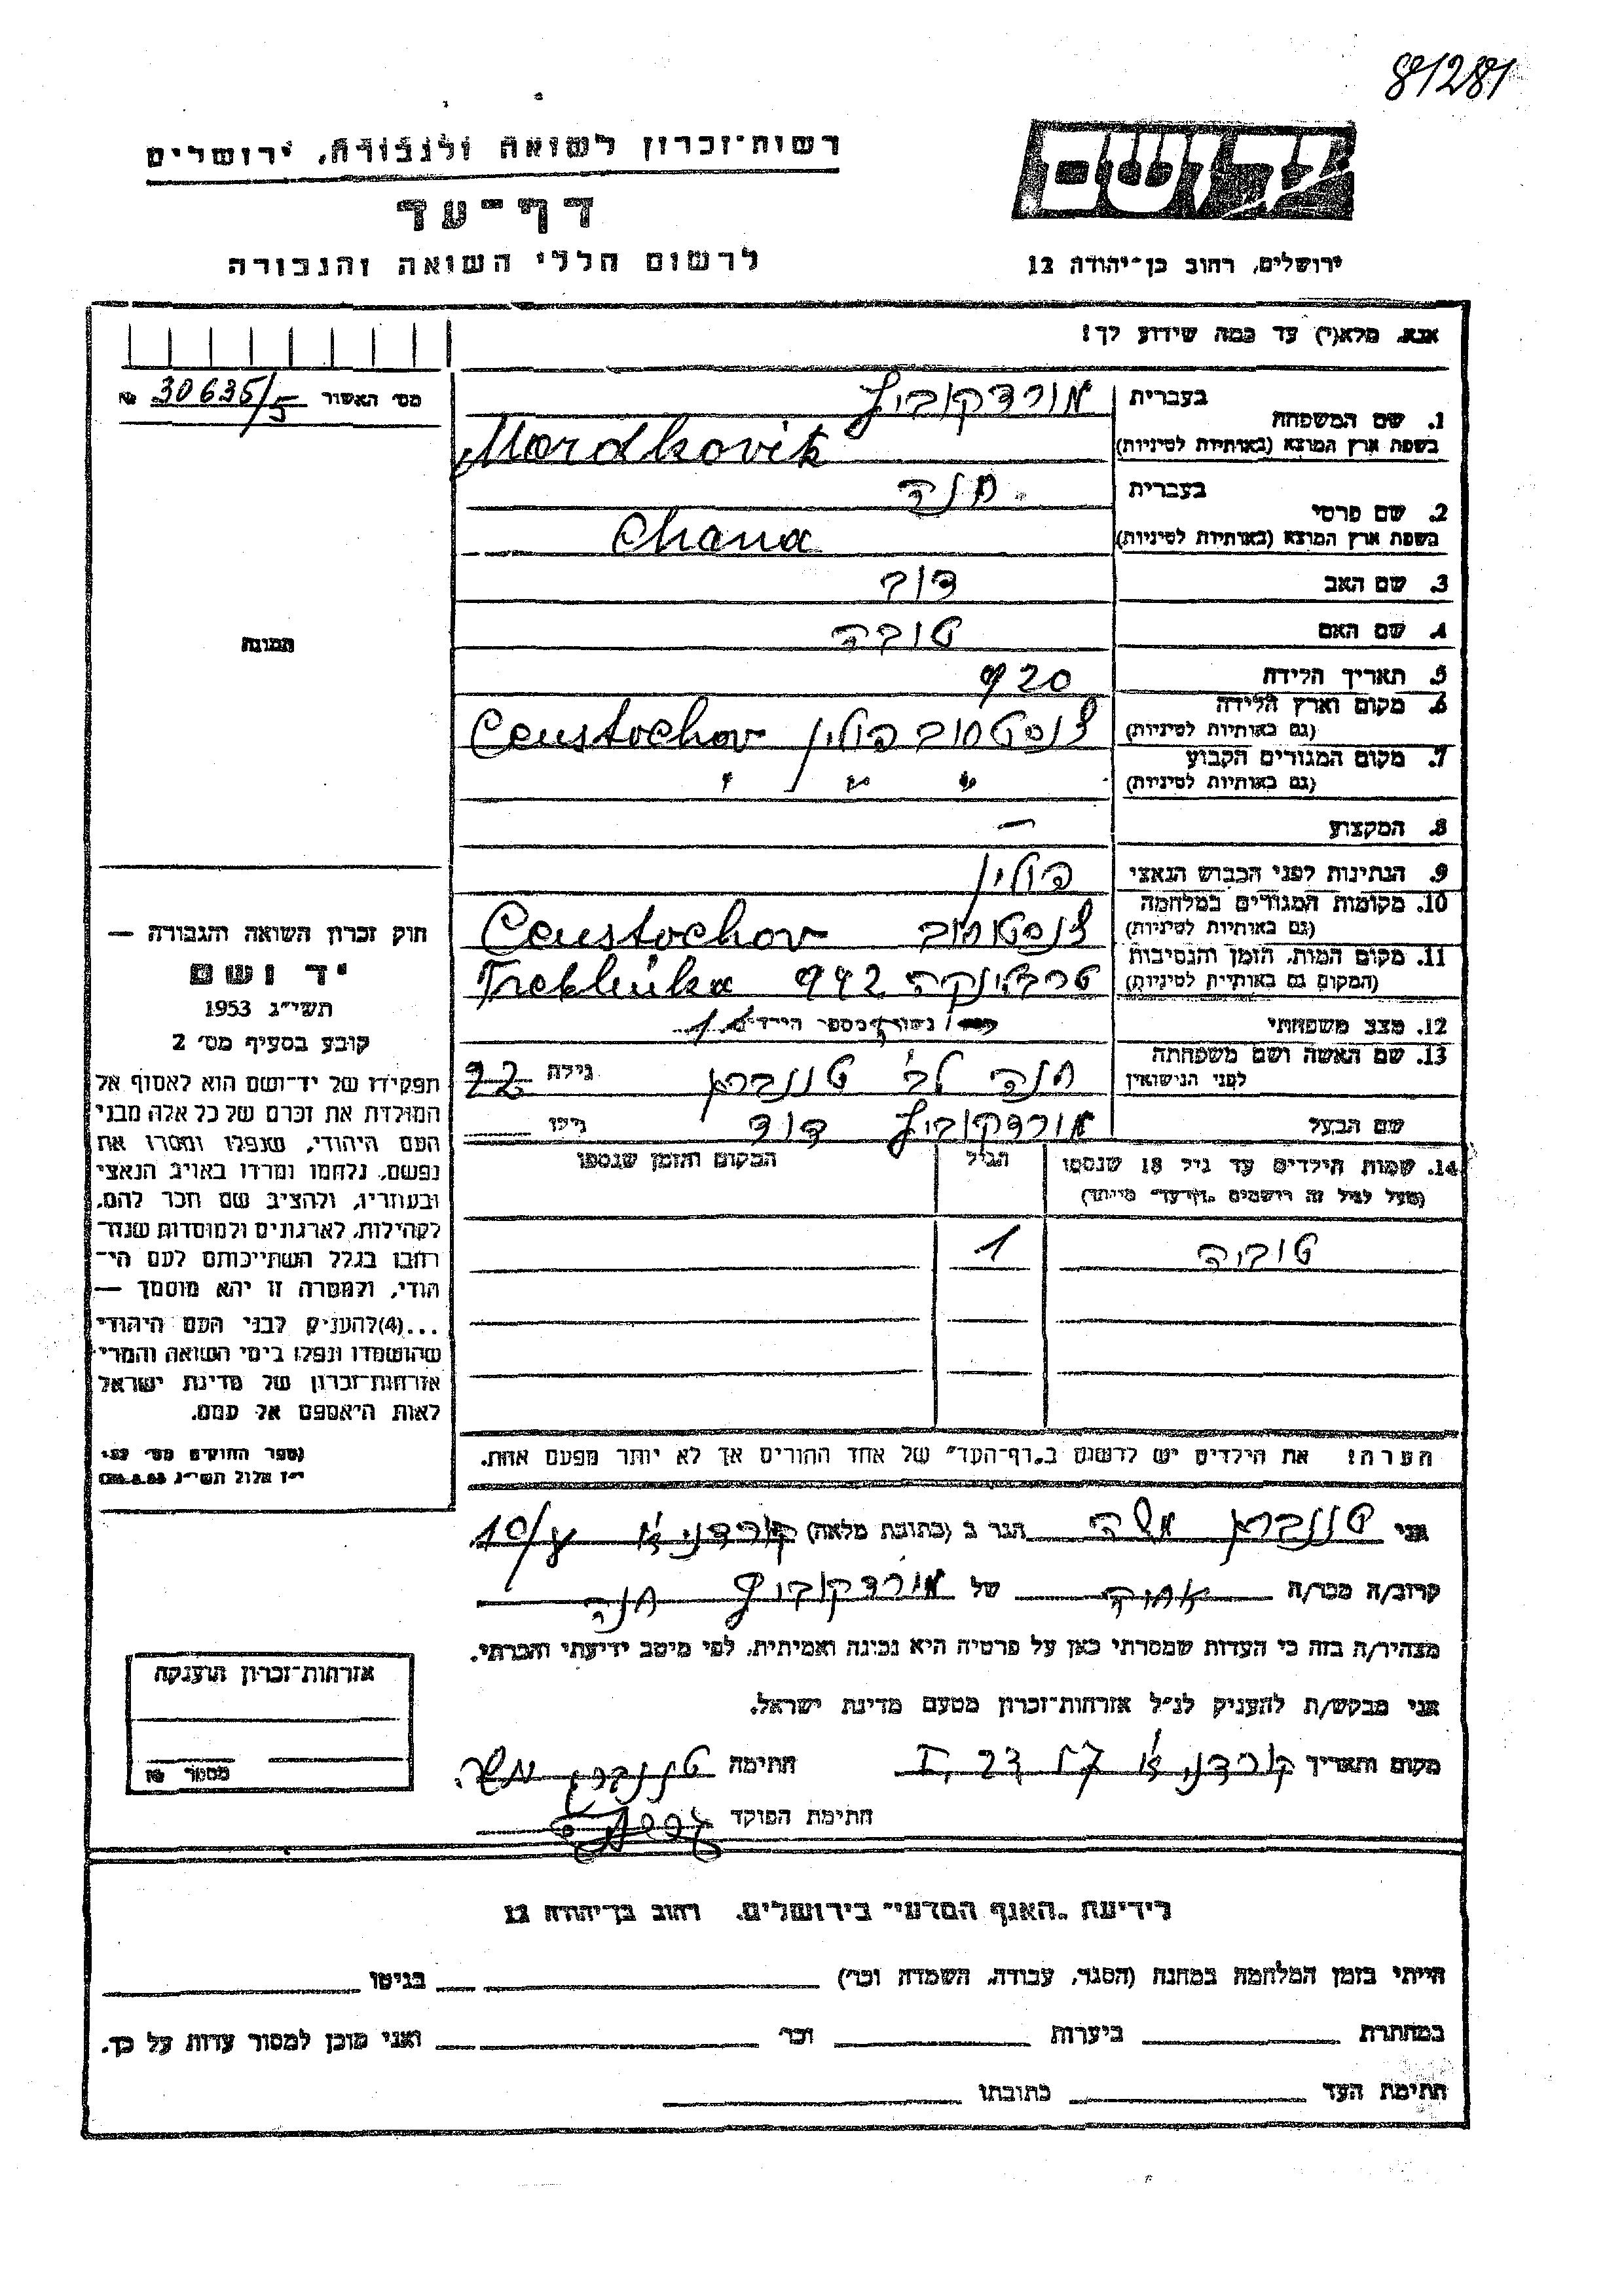 81281
יד ושם
ירושלים, רחוב בן־יהודה 12
רשות־זכרון לשואה ולגבורה, ירושלים
דף־עד
לרשום חללי השואה והגבורה
אנא, מלא(י) עד כמה שידוע לך!
מס׳ האשור № 30635/5
תמונה
1. שם המשפחה
בעברית מורדקוביץ
בשפת ארץ המוצא (באותיות לטיניות) Mordkovitz
2. שם פרטי
בעברית חנה
בשפת ארץ המוצא (באותיות לטיניות) Chana
3. שם האב דוב
4. שם האם טובה
5. תאריך הלידה 920
6. מקום וארץ הלידה צנסטחוב פולין Censtochov
(גם באותיות לטיניות)
7. מקום המגורים הקבוע " " "
(גם באותיות לטיניות)
8. המקצוע —
9. הנתינות לפני הכבוש הנאצי פולין
10. מקומות המגורים במלחמה צנסטחוב Censtochov
(גם באותיות לטיניות)
11. מקום המות, הזמן והנסיבות טרבלינקה 942 Treblinka
(המקום גם באותיות לטיניות)
12. מצב משפחתי נשוי מספר הילדים 1
13. שם האשה ושם משפחתה חנה לב׳ טננברם גילה 22
לפני הנישואין
שם הבעל מורדקוביץ דוד גילו
14. שמות הילדים עד גיל 18 שנספו הגיל המקום והזמן שנספו
(מעל לגיל זה רושמים „דף־עד״ מיוחד)
טוביה 1
הערה! את הילדים יש לרשום ב„דף־העד״ של אחד ההורים אך לא יותר מפעם אחת.
חוק זכרון השואה והגבורה —
יד ושם
תשי״ג 1953
קובע בסעיף מס׳ 2
תפקידו של יד־ושם הוא לאסוף אל
המולדת את זכרם של כל אלה מבני
העם היהודי, שנפלו ומסרו את
נפשם, נלחמו ומרדו באויב הנאצי
ובעוזריו, ולהציב שם וזכר להם,
לקהילות, לארגונים ולמוסדות שנח־
רבו בגלל השתייכותם לעם הי־
הודי, ולמטרה זו יהא מוסמך —
...(4)להעניק לבני העם היהודי
שהושמדו ונפלו בימי השואה והמרי
אזרחות־זכרון של מדינת ישראל
לאות היאספם אל עמם.
(ספר החוקים מס׳ 132
י״ז אלול תשי״ג 28.8.53)
אני טננברם משה הגר ב (כתובת מלאה) קורדני א׳ 10/
קרוב/ה מכר/ה אחיה של מורדקוביץ חנה
מצהיר/ה בזה כי העדות שמסרתי כאן על פרטיה היא נכונה ואמיתית, לפי מיטב ידיעתי והכרתי.
אני מבקש/ת להעניק לנ״ל אזרחות־זכרון מטעם מדינת ישראל.
מקום ותאריך קורדני א׳ 57 ,23 ,I חתימה טננברם משה
חתימת הפוקד
אזרחות־זכרון הוענקה
מספר №
לידיעת „האגף המדעי״ בירושלים, רחוב בן־יהודה 12
הייתי בזמן המלחמה במחנה (הסגר, עבודה, השמדה וכו׳) בגיטו
במחתרת ביערות וכו׳ ואני מוכן למסור עדות על כך.
חתימת העד כתובתו